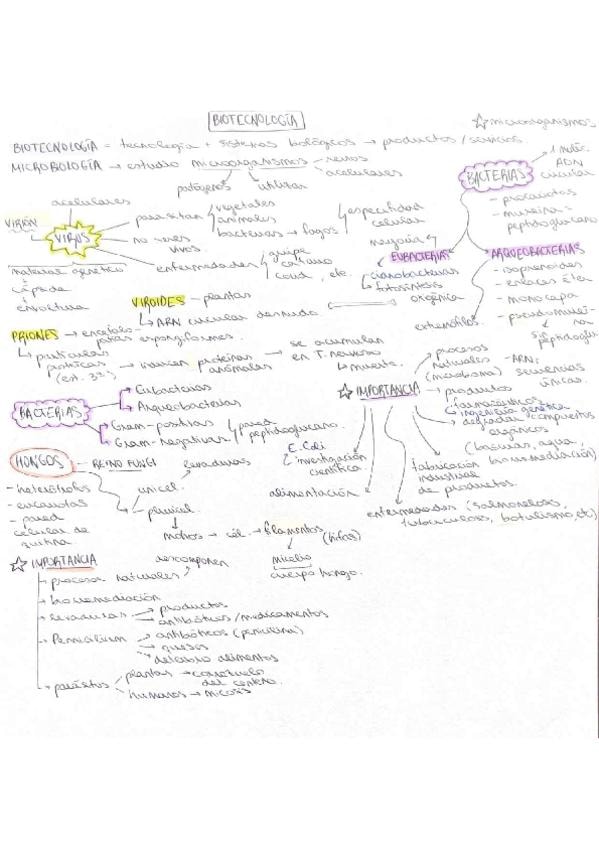 BIOTECNOLOGÍA
☆ microorganismos
BIOTECNOLOGÍA = tecnología + sistemas biológicos → productos / servicios.
MICROBIOLOGÍA → estudio microorganismos
acelulares
patógenos
utilizar
BACTERIAS
1 moléc. ADN circular
- procariotas
- mureína = peptidoglucano
acelulares
VIRIÓN
VIRUS
parasitan
vegetales
animales
bacterias → fagos
especificidad celular
no seres vivos.
enfermedades
gripe
catarro
covid, etc.
material genético
cápside
envoltura
mayoría
EUBACTERIAS
cianobacterias
fotosíntesis oxigénica
ARQUEOBACTERIAS
- isoprenoides
- enlaces éter
- monocapa
- pseudomureína
sin peptidoglu.
extremófilos
VIROIDES - plantas
ARN circular desnudo
PRIONES → encefalopatías espongiformes.
partículas proteicas (est. 3ª)
→ inducen proteínas anómalas
→ se acumulan en T. nervioso
muerte.
BACTERIAS
Eubacterias
Arqueobacterias
Gram-positivas
Gram-negativas
pared peptidoglucano.
☆ IMPORTANCIA
procesos naturales (microbioma)
-ARNr secuencias únicas.
productos farmacéuticos
ingeniería genética
degradar compuestos orgánicos
(basuras, agua, biorremediación)
fabricación industrial de productos.
enfermedades (salmonelosis, tuberculosis, botulismo, etc)
alimentación
investigación científica
E. Coli
HONGOS
REINO FUNGI
levaduras
unicel.
pluricel.
- heterótrofos
- eucariotas
- pared celular de quitina.
mohos → cél. → filamentos (hifas)
micelio
cuerpo hongo.
☆ IMPORTANCIA
procesos naturales
descomponen
biorremediación
levaduras
productos
antibióticos / medicamentos
Penicillium
antibióticos (penicilina)
quesos
deterioro alimentos
parásitos
plantas → cornezuelo del centeno.
humanos → micosis